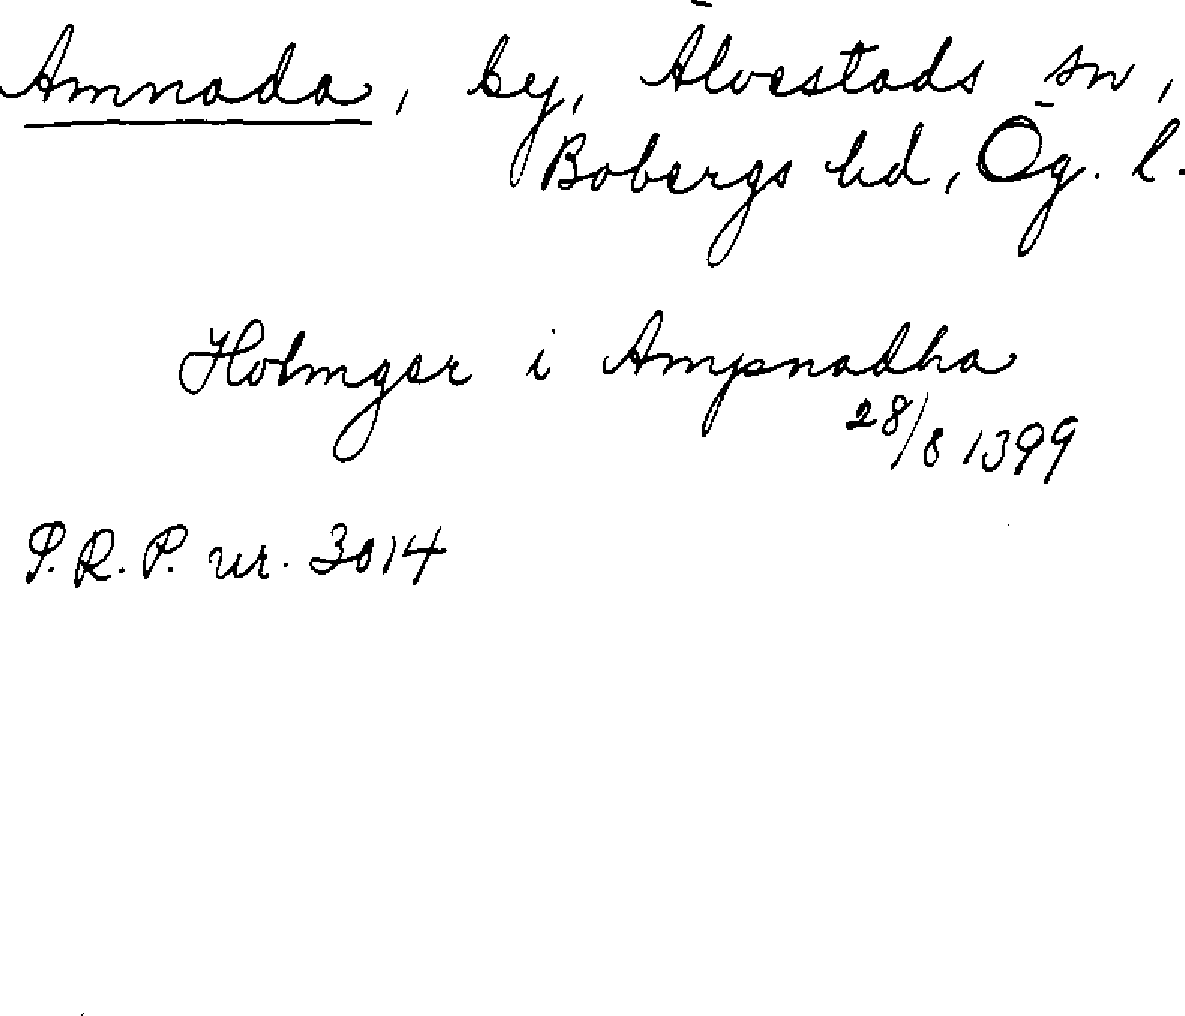 Amnada, by, Älvestads sn,
Bobergs hd, Ög. l.
Holmger i Ampnadha
28/8 1399
S.R.P. nr. 3014